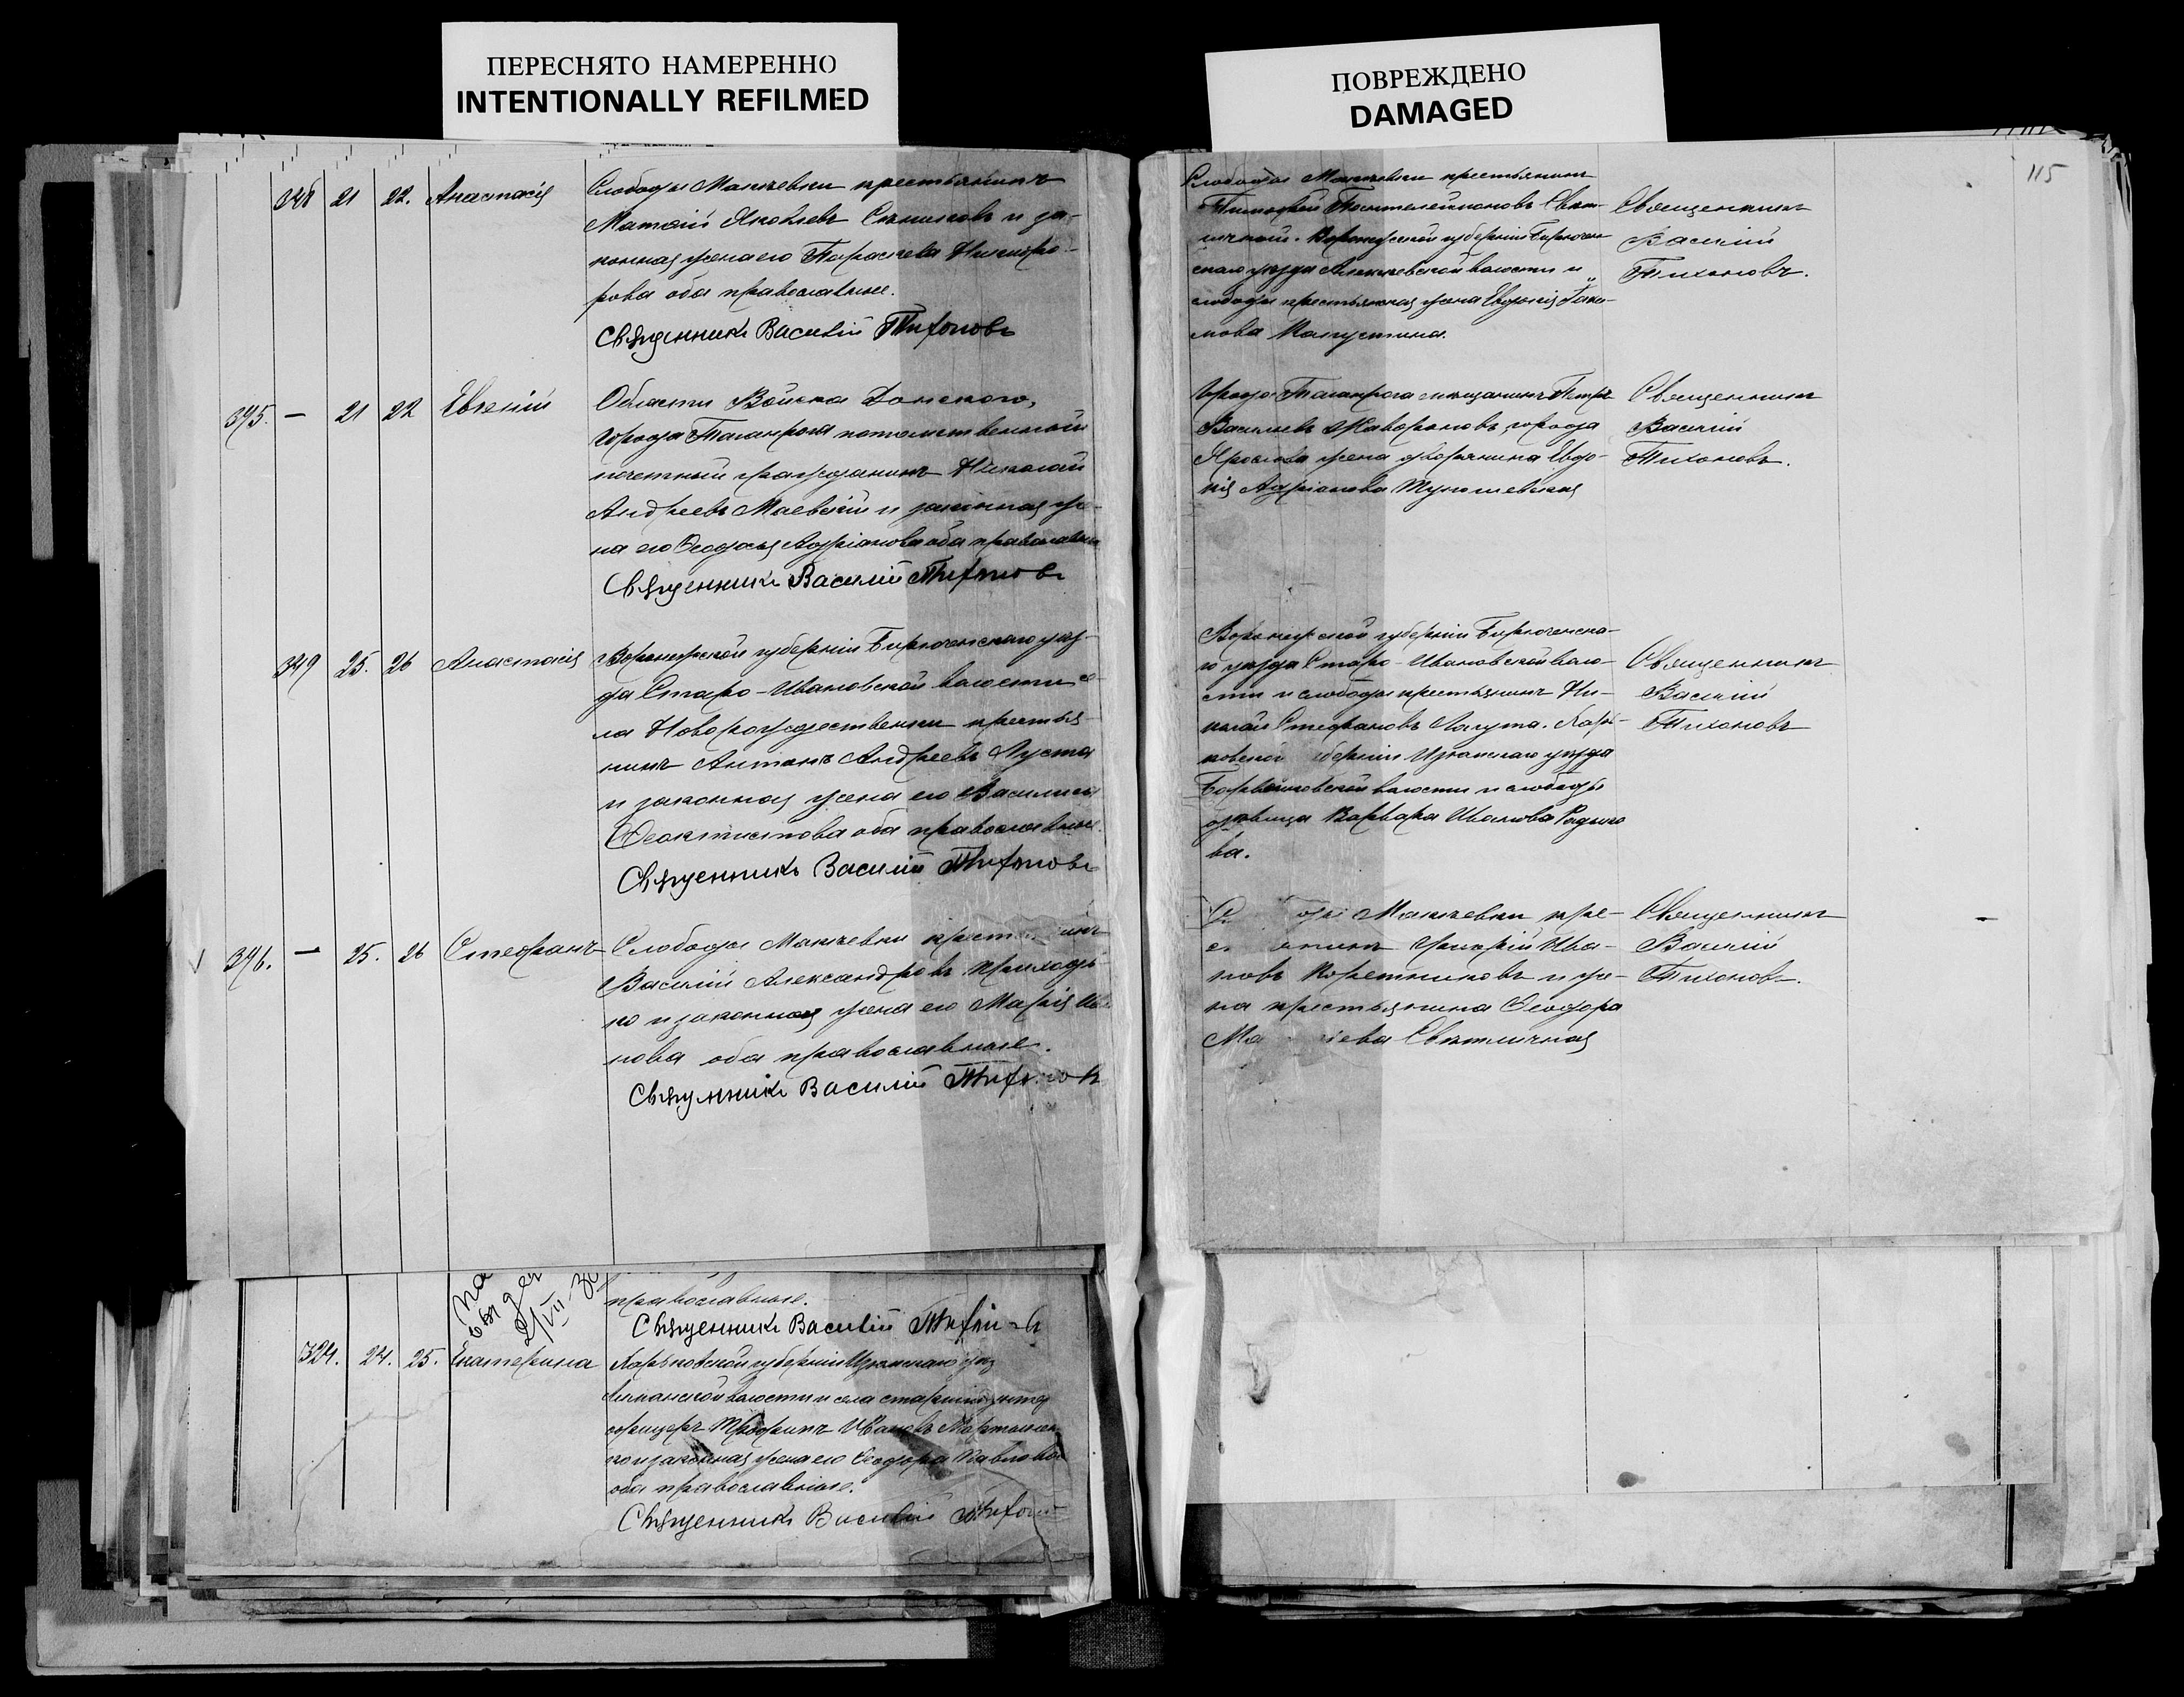 ПЕРЕСНЯТО НАМЕРЕННО
INTENTIONALLY REFILMED
ПОВРЕЖДЕНО
DAMAGED
115
348 21 22. Анастасія
Слободы Макѣевки крестьянинъ
Матѳій Яковлевъ и за-
конная жена его Параскева Никифо-
рова оба православные.
Священникъ Василій Тихоновъ
Слободы Макѣевки крестьянинъ
Тимоѳей Пантелеймоновъ Свѣт-
личный. Воронежской губерніи Бирючен-
скаго уѣзда Алексѣевской волости и
слободы крестьянская жена Евдокія Іаки-
мова Капустина.
Священникъ
Василій
Тихоновъ.
395. — 21 22 Евгеній
Области Войска Донского,
города Таганрога потомственный
почетный гражданинъ Николай
Андреевъ Маевскій и законная же-
на его Ѳеодосія Адріанова оба православные
Священникъ Василій Тихоновъ
Города Таганрога мѣщанинъ Петръ
Васильевъ Жаворонковъ, города
жена дворянина Евдо-
кія Адріанова
Священникъ
Василій
Тихоновъ.
349 25. 26 Анастасія
Воронежской губерніи Бирюченскаго уѣз-
да Старо-Ивановской волости се-
ла Новорождественки крестья-
нинъ Антонъ Андреевъ Луста
и законная жена его Василиса
Ѳеоктистова оба православные.
Священникъ Василій Тихоновъ
Воронежской губерніи Бирюченска-
го уѣзда Старо-Ивановской воло-
сти и слободы крестьянинъ Ни-
колай Стефановъ Лагута. Харь-
ковской губерніи Изюмскаго уѣзда
Барвенковской волости и слободы
дѣвица Варвара Иванова
ва.
Священникъ
Василій
Тихоновъ
396. — 25. 26 Стефанъ
Слободы Макѣевки крест инъ
Василій Александровъ Приходь-
ко и законная жена его Марія Ива-
нова оба православные.
Священникъ Василій Тихоновъ
С оды Макѣевки кре-
с янинъ Григорій Ива-
новъ Коретниковъ и же-
на крестьянина Ѳеодора
Ма ѣева Свѣтличная
Священникъ
Василій
Тихоновъ.
2/VII-
православные.
Священникъ Василій Тихоновъ
324. 24. 25. Екатерина
Харьковской губерніи Изюмскаго уѣз
Лиманской волости и села старшій унтер
офицеръ Трофимъ Ивановъ Мартынен-
ко и законная жена его Ѳеодора Павлова
оба православные.
Священникъ Василій Тихоно